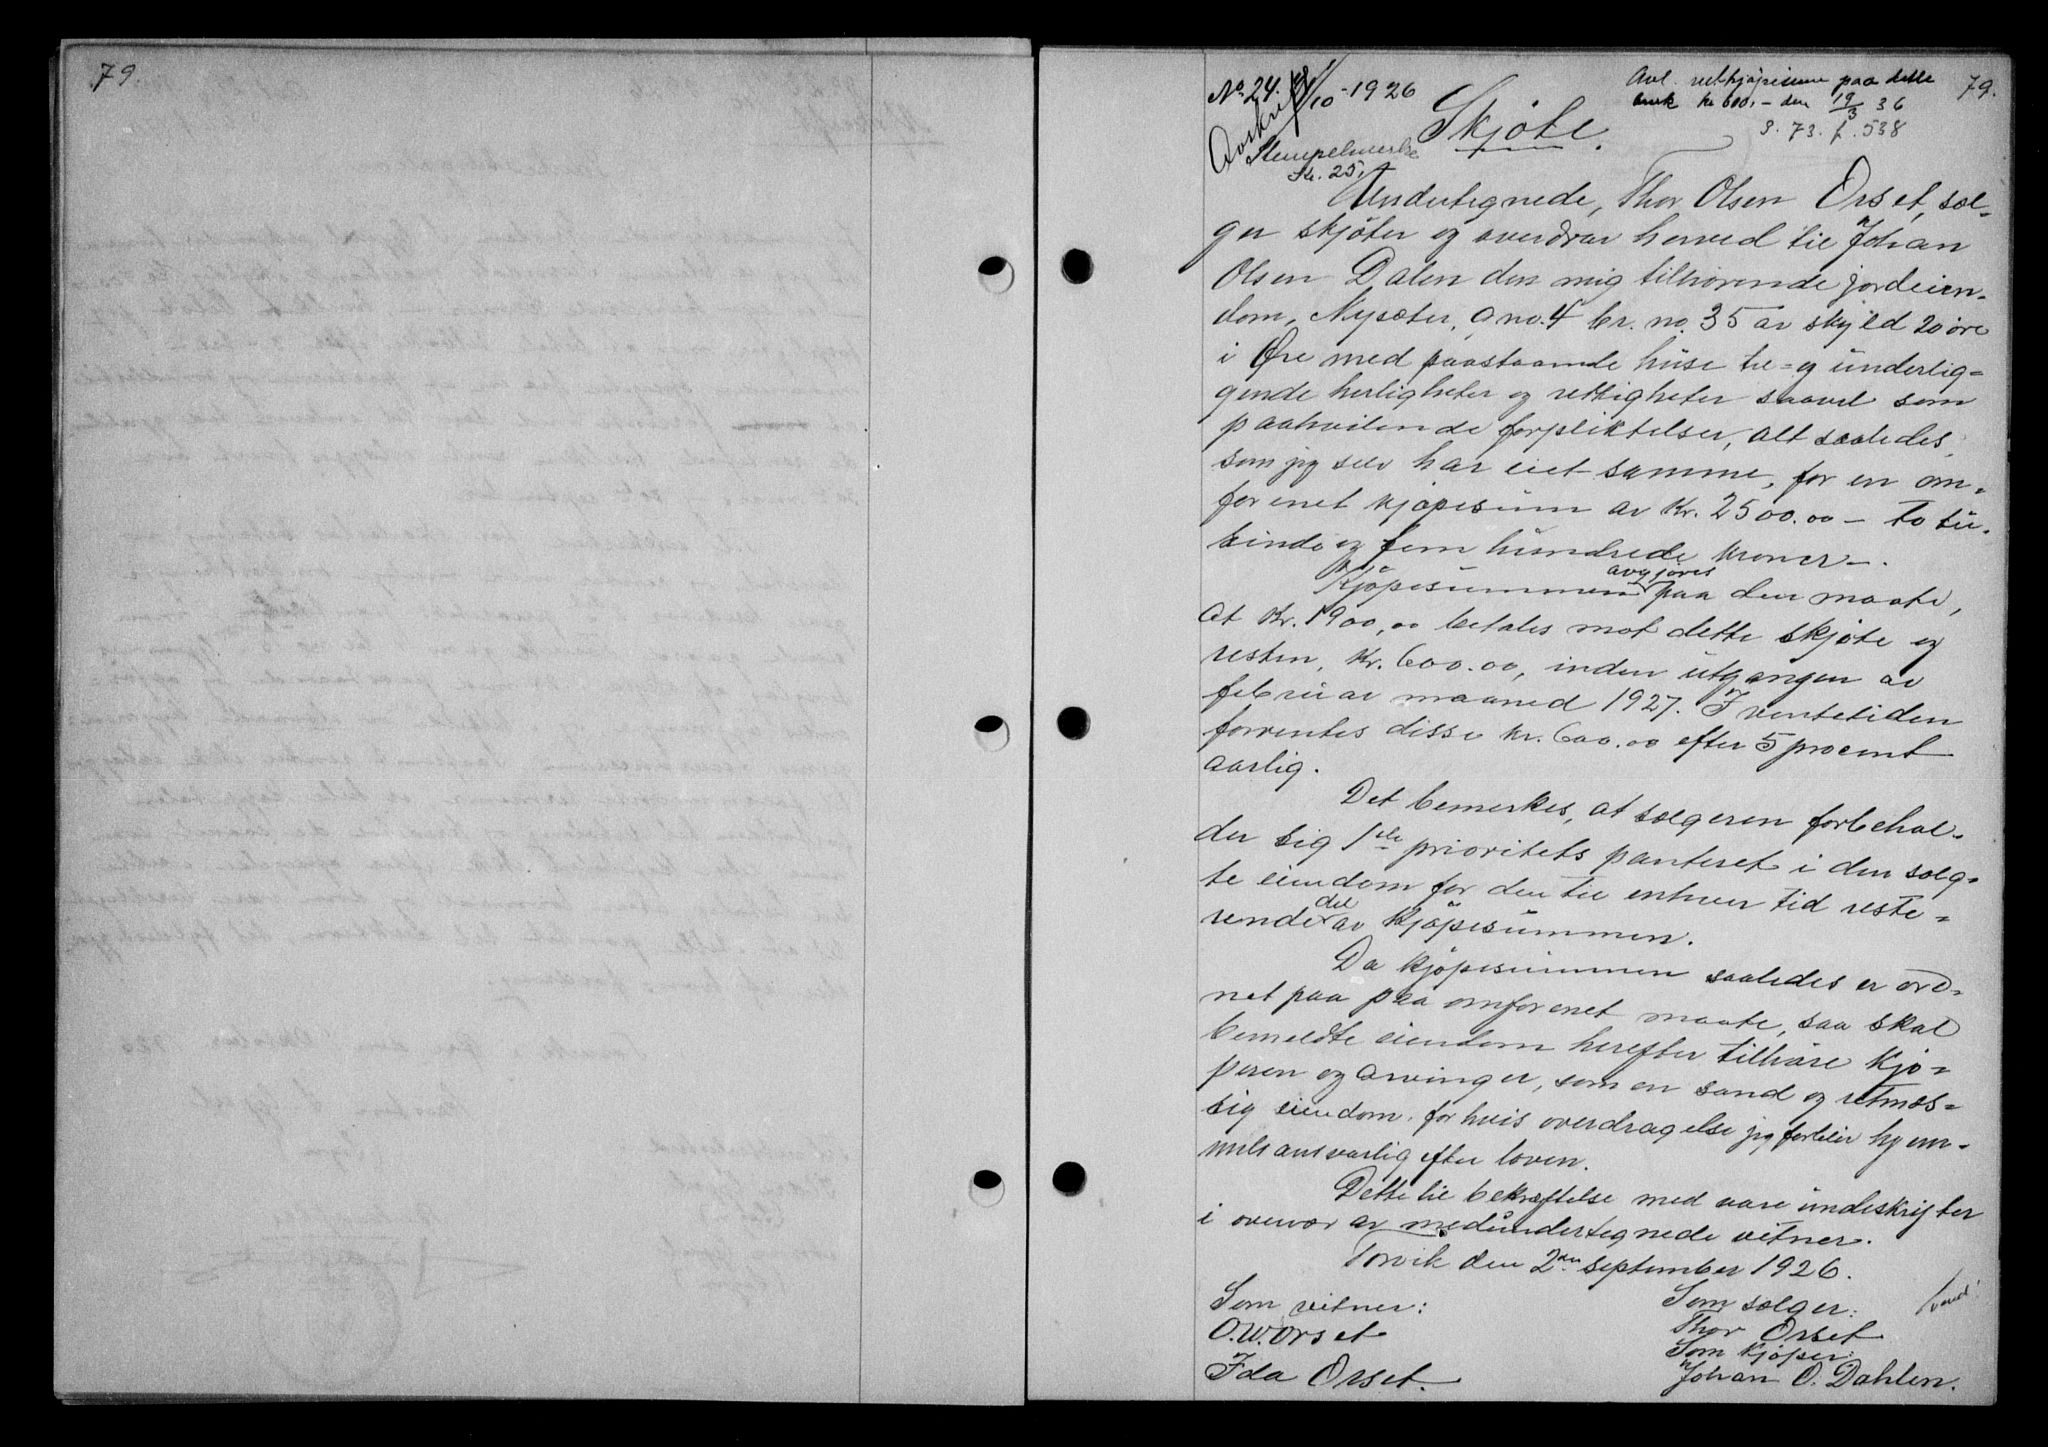 79.
No. 24. 1/10-1926
Avl. restkjøpesum paa dette
kr 600,- den 19/3 36
3. 73. f. 538
79.
Avskrift
Skjøte.
Stempelmerke
Kr. 25,
Undertegnede, Thor Olsen Orset, sæl-
ger skjøter og overdrar herved til Johan
Olsen Dalen den mig tilhørende jordeien-
dom, Nysæter, g no. 4 br. no. 35 av skyld 20 øre
i Øre med paastaaende huse til- og underlig-
gende herligheter og rettigheter saavel som
paahvilende forpliktelser, alt saaledes
som jeg selv har eiet samme, for en om-
forenet kjøpesum av Kr. 2500.00 - to tu-
sinde og fem hundrede kroner -.
Kjøpesummen avgjøres paa den maate,
at Kr. 1900,00 betales mot dette skjøte og
resten, Kr. 600.00, inden utgangen av
februar maaned 1927. I ventetiden
forrentes disse kr. 600.00 efter 5 procent
aarlig.
Det bemerkes, at sælgeren forbehol-
der sig 1ste prioritets panteret i den solg-
te eiendom for den til enhver tid reste-
rende del av kjøpesummen.
Da kjøpesummen saaledes er ord-
net paa paa omforenet maate, saa skal
bemeldte eiendom herefter tilhøre kjø-
peren og arvinger, som en sand og retmæs-
sig eiendom, for hvis overdragelse jeg forblir hjem-
mels ansvarlig efter loven.
Dette til bekræftelse med vare undeskrifter
i overvær av medundertegnede vitner.
Torvik den 2den september 1926.
Som vitner:
Som sælger:
/vend!
O.W. Orset
Thor Orset
Som kjøper:
Ida Orset.
Johan O. Dahlen.